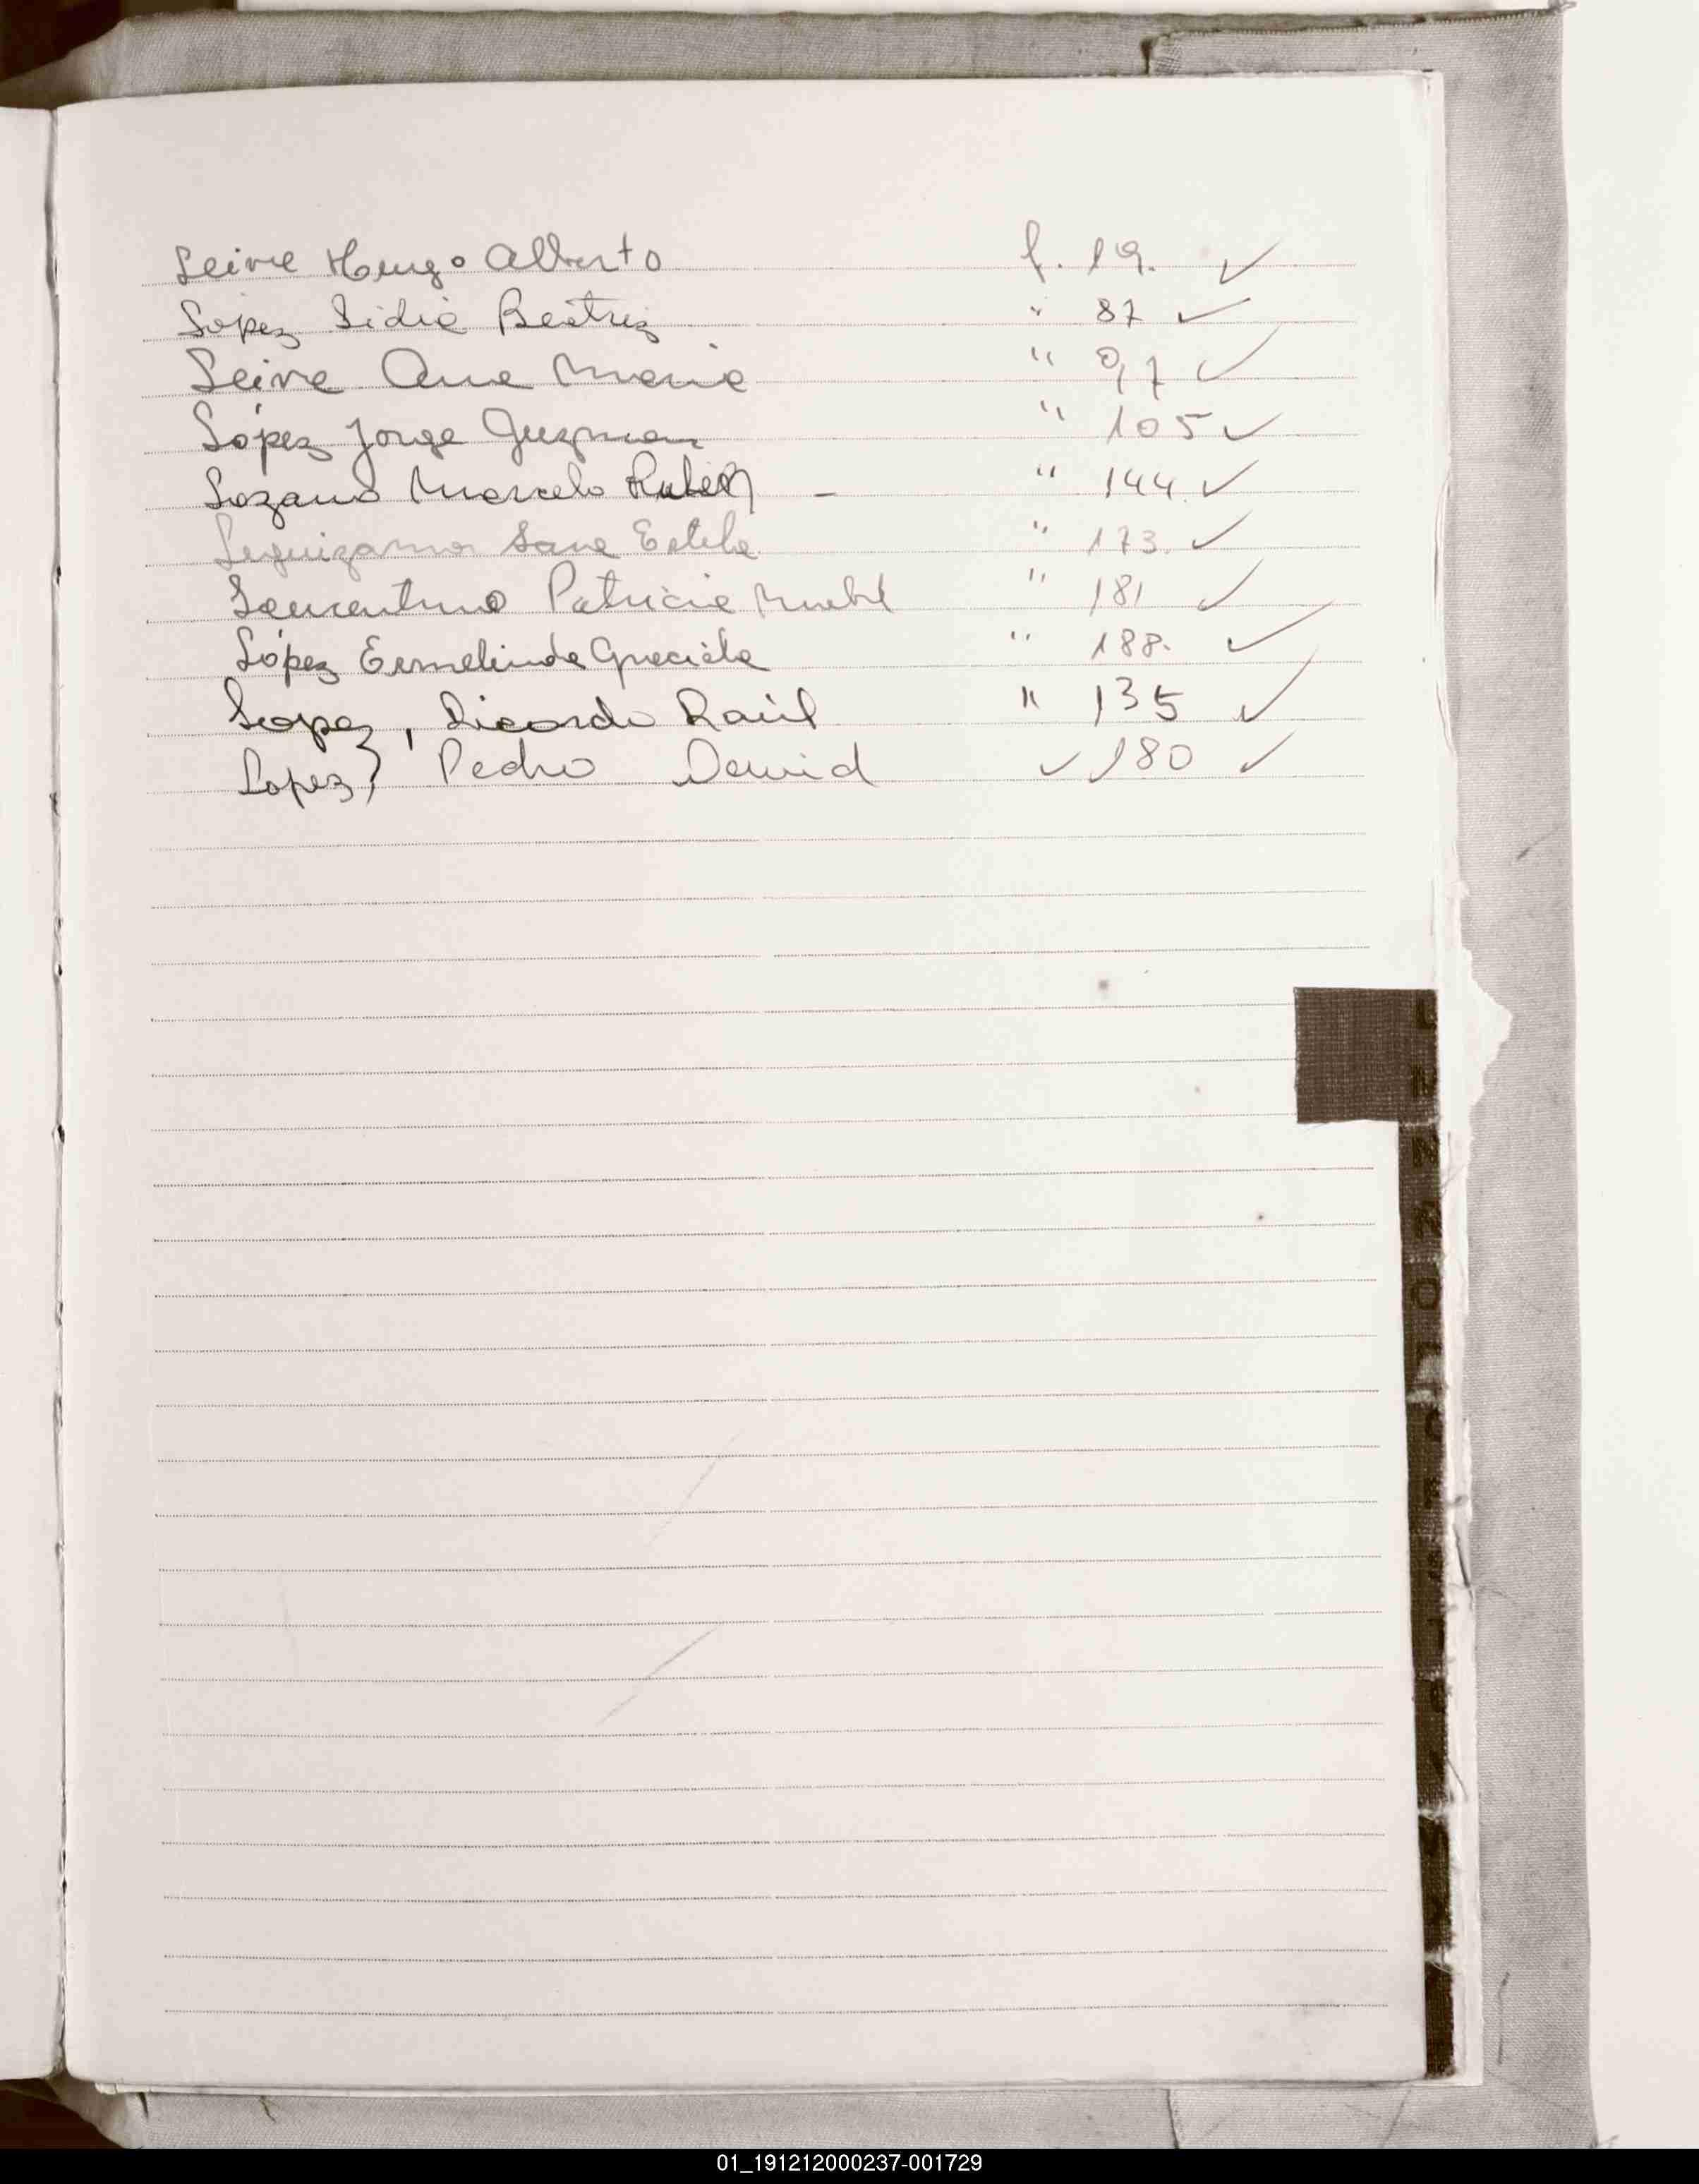 Leiva Hugo Alberto f. 19. ✓
López Lidia Beatriz " 87 ✓
Leiva Ana Maria " 97 ✓
López Jorge Guzman " 105 ✓
Lozano Marcelo Rubén - " 144. ✓
Leguizamon Sara Estela " 173. ✓
Patricia Mabel " 181 ✓
López Ermelinda Graciela " 188. ✓
Lopez, Ricardo Raúl " 135 ✓
Lopez, Pedro David ✓ 180 ✓
L
M
N
Ñ
O
01_191212000237-001729